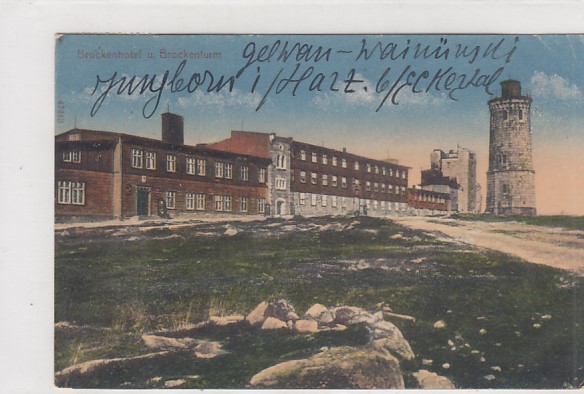 Brockenhotel u. Brockenturm
gelwan-wainünski
Jungborn i/Harz. b/Eckertal